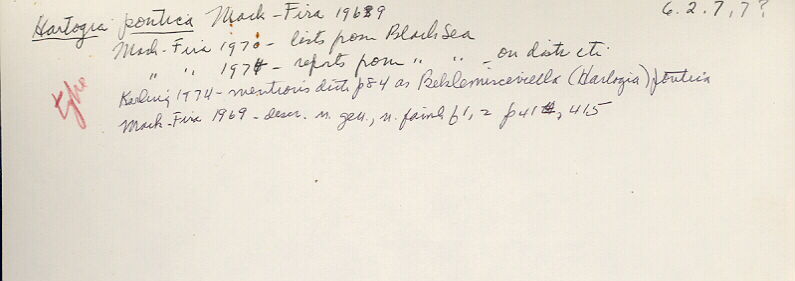 Hartogia pontica Mack-Fira 1969 6.2.7,7?
Mack-Fira 1970 - lists from Black Sea
" " 1974 - reports from " " - on distr. etc.
type
Karling 1974 - mentions distr. p84 as Beklemischeviella (Hartogia) pontica
Mack-Fira 1969 - descr. n. gen., n. fam. f1,2 p414, 415